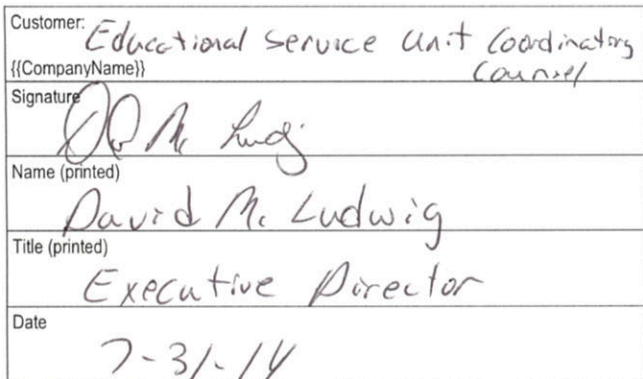 Customer: Educational Service Unit Coordinating
{{CompanyName}} Counsel
Signature
Name (printed)
David M. Ludwig
Title (printed)
Executive Director
Date
7-31-14